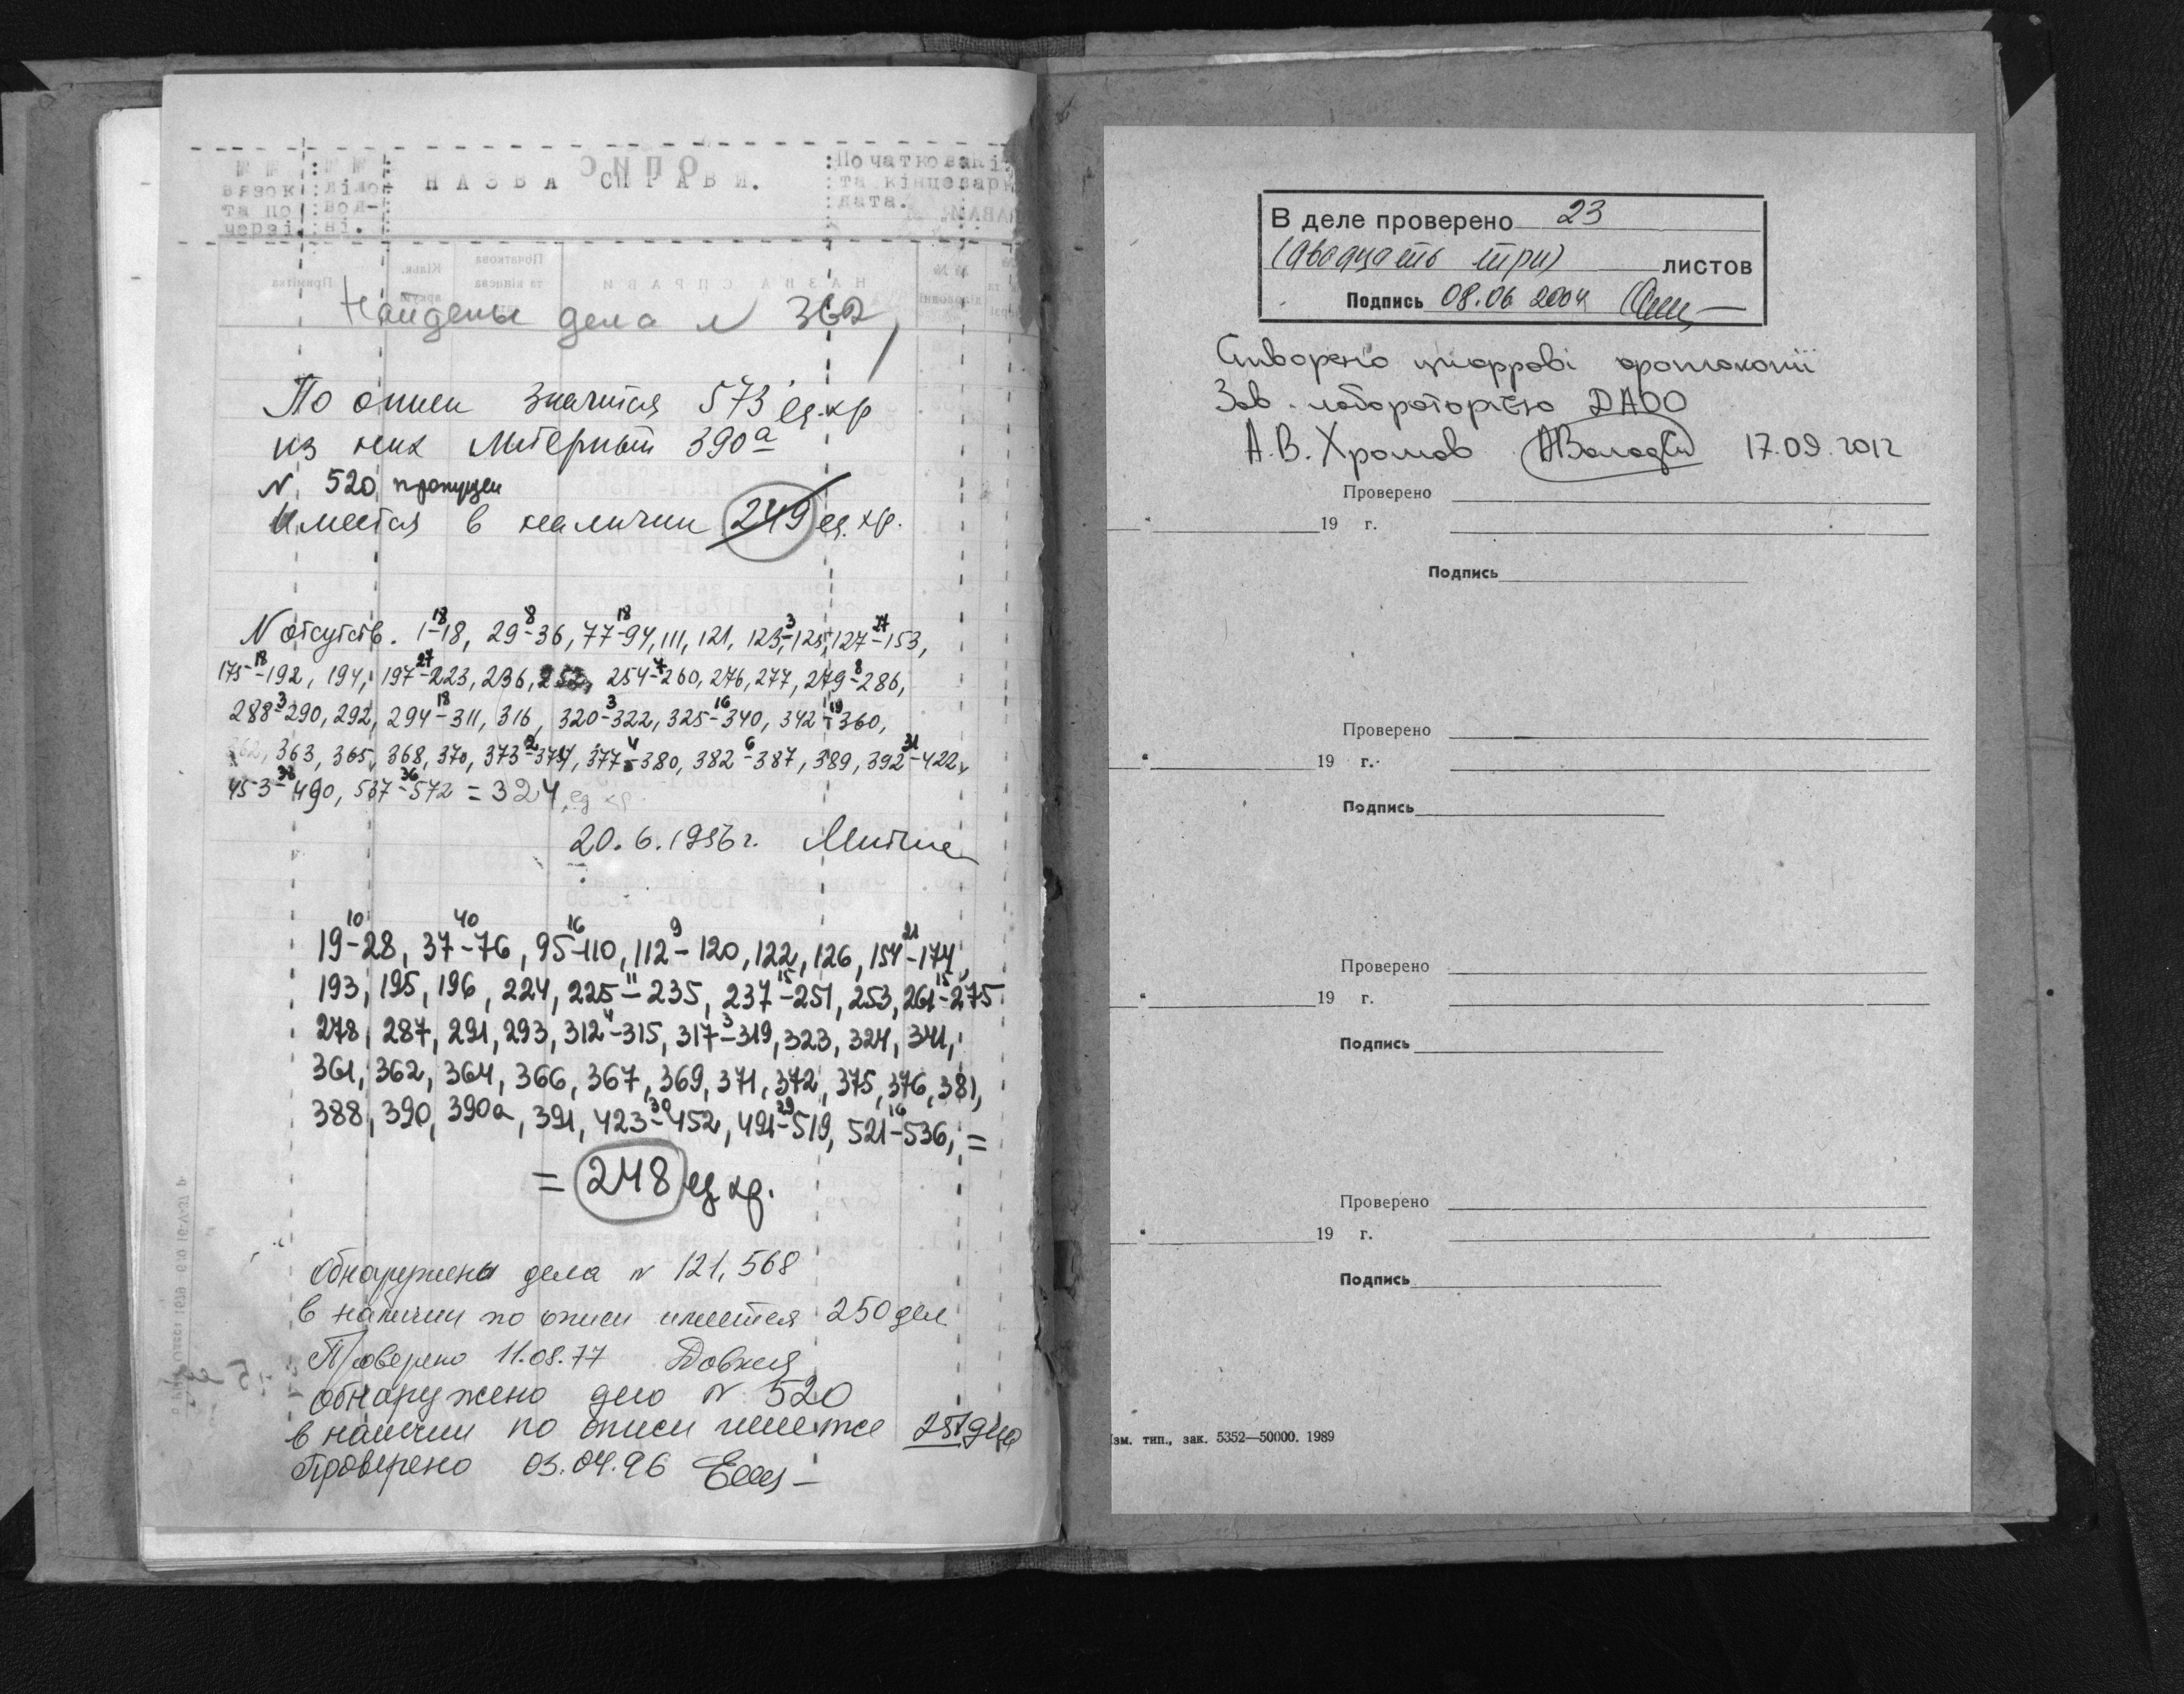 № № вязок та по черзі.
№ № діло-вод-ні.
НАЗВА СПРАВИ.
Початкова та кінцева дата.
Найдены дела № 362,
По описи значится 573 ед. хр
из них литерный 390а
№ 520 пропущен
Имеется в наличии 249 ед. хр.
№ отсутств. 1-18, 29-36, 77-94, 111, 121, 123-125, 127-153,
175-192, 194, 197-223, 236, 252, 254-260, 276, 277, 279-286,
288-290, 292, 294-311, 316, 320-322, 325-340, 342-360,
362, 363, 365, 368, 370, 373-374, 377-380, 382-387, 389, 392-422,
453-490, 537-572 = 324 ед хр.
20.6.1956 г.
19-28, 37-76, 95-110, 112-120, 122, 126, 154-174,
193, 195, 196, 224, 225-235, 237-251, 253, 261-275
278, 287, 291, 293, 312-315, 317-319, 323, 324, 341,
361, 362, 364, 366, 367, 369, 371, 372, 375, 376, 381,
388, 390, 390а, 391, 423-452, 491-519, 521-536, =
= 248 ед хр.
Обнаружены дела № 121, 568
в наличии по описи имеется 250 дел
Проверено 11.08.77
обнаружено дело № 520
в наличии по описи имеется 251 дело
Проверено 03.04.96
В деле проверено 23
(двадцать три) листов
Подпись 08.06 2004
Створено цифрові фотокопії
Зав. лабораторією ДАОО
А.В. Хромов 17.09.2012
Проверено
19 г.
Подпись
Проверено
19 г.
Подпись
Проверено
19 г.
Подпись
Проверено
19 г.
Подпись
Изм. тип., зак. 5352—50000. 1989